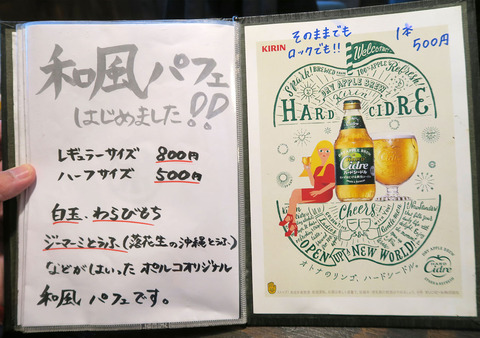 和風パフェ
はじめました!!
レギュラーサイズ 800円
ハーフサイズ 500円
白玉、わらびもち
ジーマーミとうふ(落花生の沖縄とうふ)
などがはいった ポルコオリジナル
和風パフェです。
そのままでも
ロックでも!!
1本
500円
KIRIN
Welcome!
Smart! BREWED FROM 100% APPLE Refresh!
DRY APPLE BREW
Kirin
HARD CIDRE
Cidre
ハードシードル
Cheers!
OPEN UP! NEW WORLD
オトナのリンゴ、ハードシードル。
100% APPLE BREW
HARD
Cidre